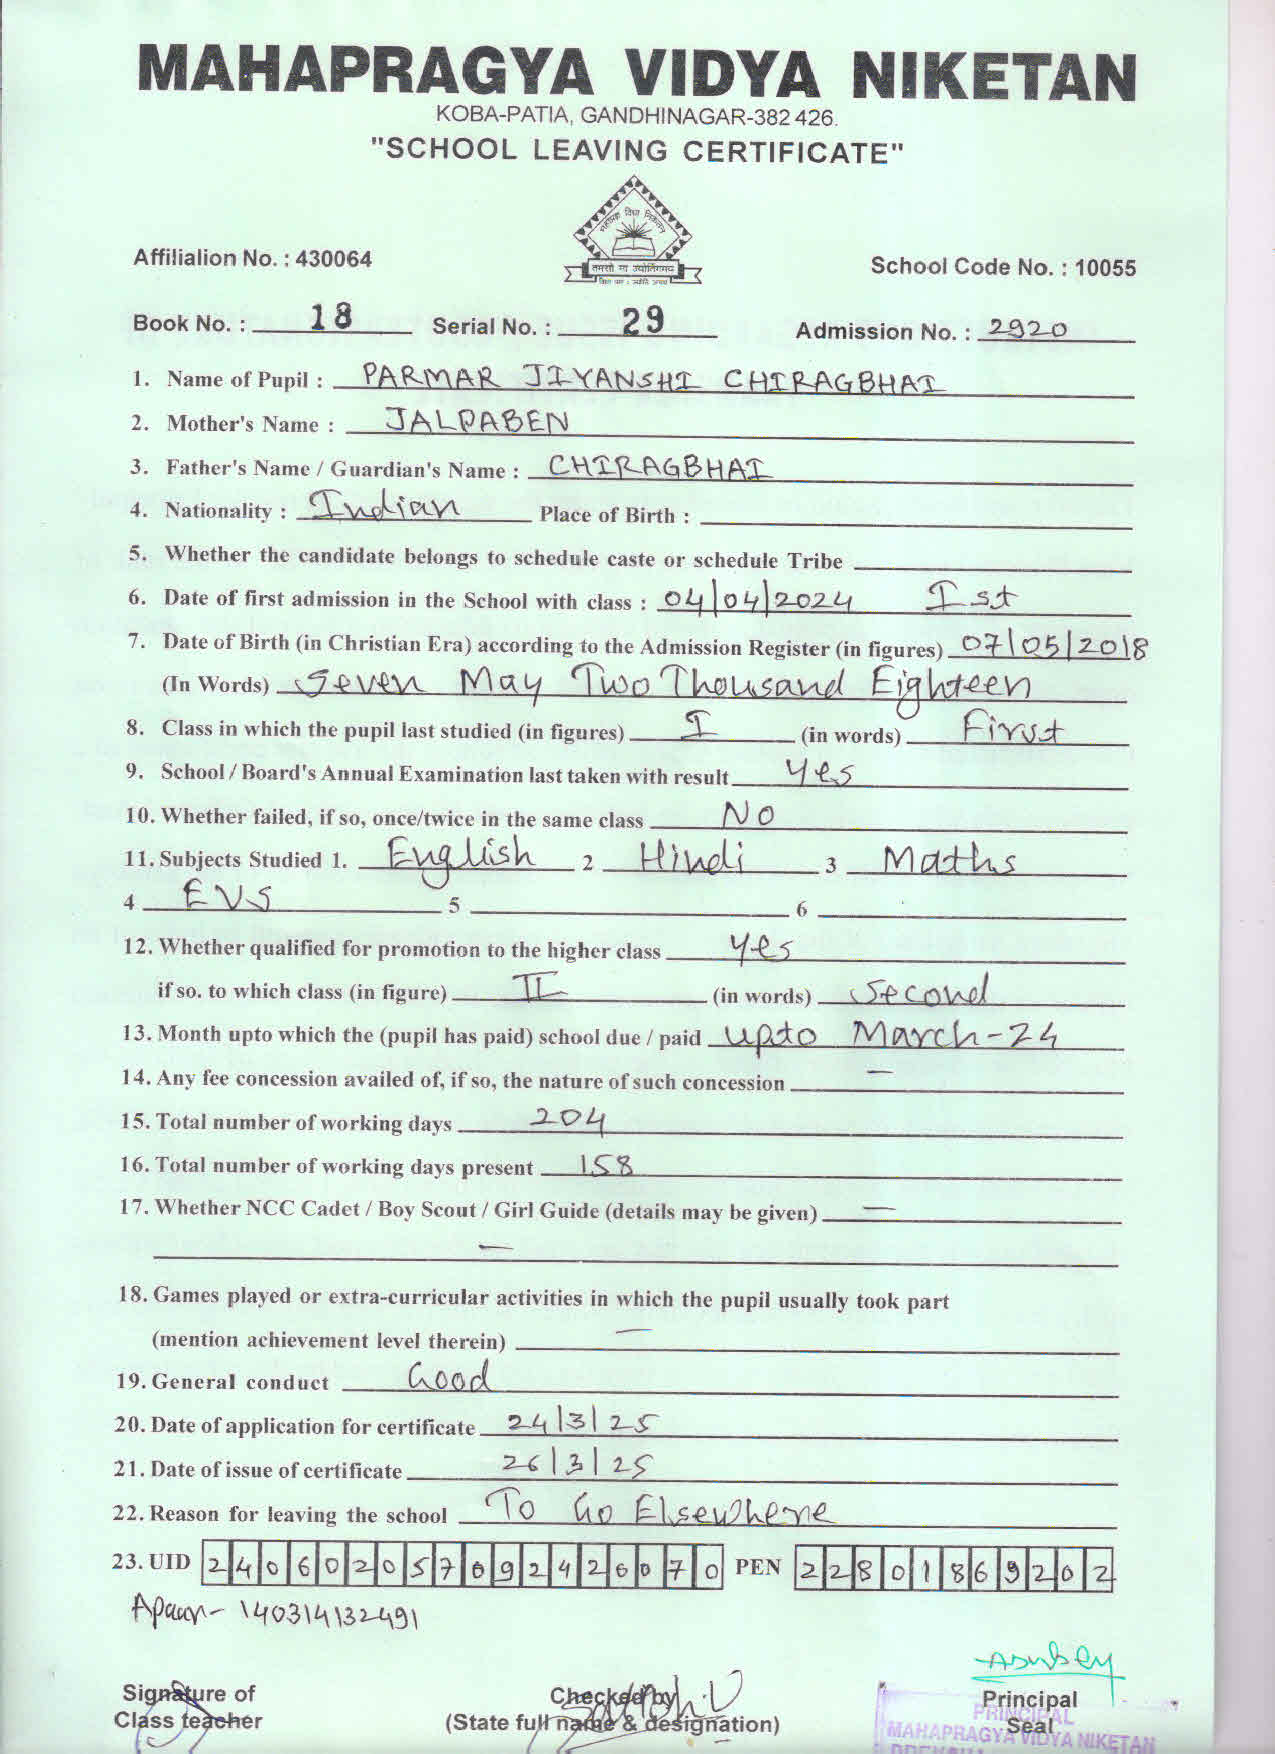 MAHAPRAGYA VIDYA NIKETAN
KOBA-PATIA, GANDHINAGAR-382 426.
"SCHOOL LEAVING CERTIFICATE"
महाप्रज्ञ विद्या निकेतन
तमसो मा ज्योतिर्गमय
Affilialion No. : 430064
School Code No. : 10055
Book No. : 18 Serial No. : 29 Admission No. : 2920
1. Name of Pupil : PARMAR JIYANSHI CHIRAGBHAI
2. Mother's Name : JALPABEN
3. Father's Name / Guardian's Name : CHIRAGBHAI
4. Nationality : Indian Place of Birth :
5. Whether the candidate belongs to schedule caste or schedule Tribe
6. Date of first admission in the School with class : 04/04/2024 Ist
7. Date of Birth (in Christian Era) according to the Admission Register (in figures) 07/05/2018
(In Words) Seven May Two Thousand Eighteen
8. Class in which the pupil last studied (in figures) I (in words) First
9. School / Board's Annual Examination last taken with result Yes
10. Whether failed, if so, once/twice in the same class NO
11. Subjects Studied 1. English 2 Hindi 3 Maths
4 EVS 5 6
12. Whether qualified for promotion to the higher class Yes
if so. to which class (in figure) II (in words) Second
13. Month upto which the (pupil has paid) school due / paid upto March-24
14. Any fee concession availed of, if so, the nature of such concession —
15. Total number of working days 204
16. Total number of working days present 158
17. Whether NCC Cadet / Boy Scout / Girl Guide (details may be given) —
—
18. Games played or extra-curricular activities in which the pupil usually took part
(mention achievement level therein) —
19. General conduct Good
20. Date of application for certificate 24/3/25
21. Date of issue of certificate 26/3/25
22. Reason for leaving the school To Go Elsewhere
23. UID 240602057092426070 PEN 22801869202
Apaar- 140314132491
Signature of Class teacher
Checked by
(State full name & designation)
Principal
Seal
PRINCIPAL
MAHAPRAGYA VIDYA NIKETAN